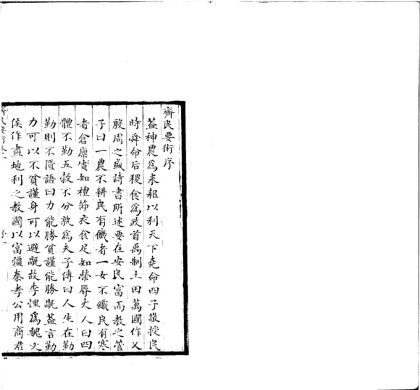 齊民要術序
蓋神農爲耒耜以利天下堯命四子敬授民
時舜命后稷食爲政首禹制土田萬國作乂
殷周之盛詩書所述要在安民富而教之管
子曰一農不耕民有饑者一女不織民有寒
者倉廩實知禮節衣食足知榮辱丈人曰四
體不勤五穀不分孰爲夫子傳曰人生在勤
勤則不匱語曰力能勝貧謹能勝旤蓋言勤
力可以不貧謹身可以避旤故李悝爲魏文
侯作盡地利之教國以富強秦孝公用商君